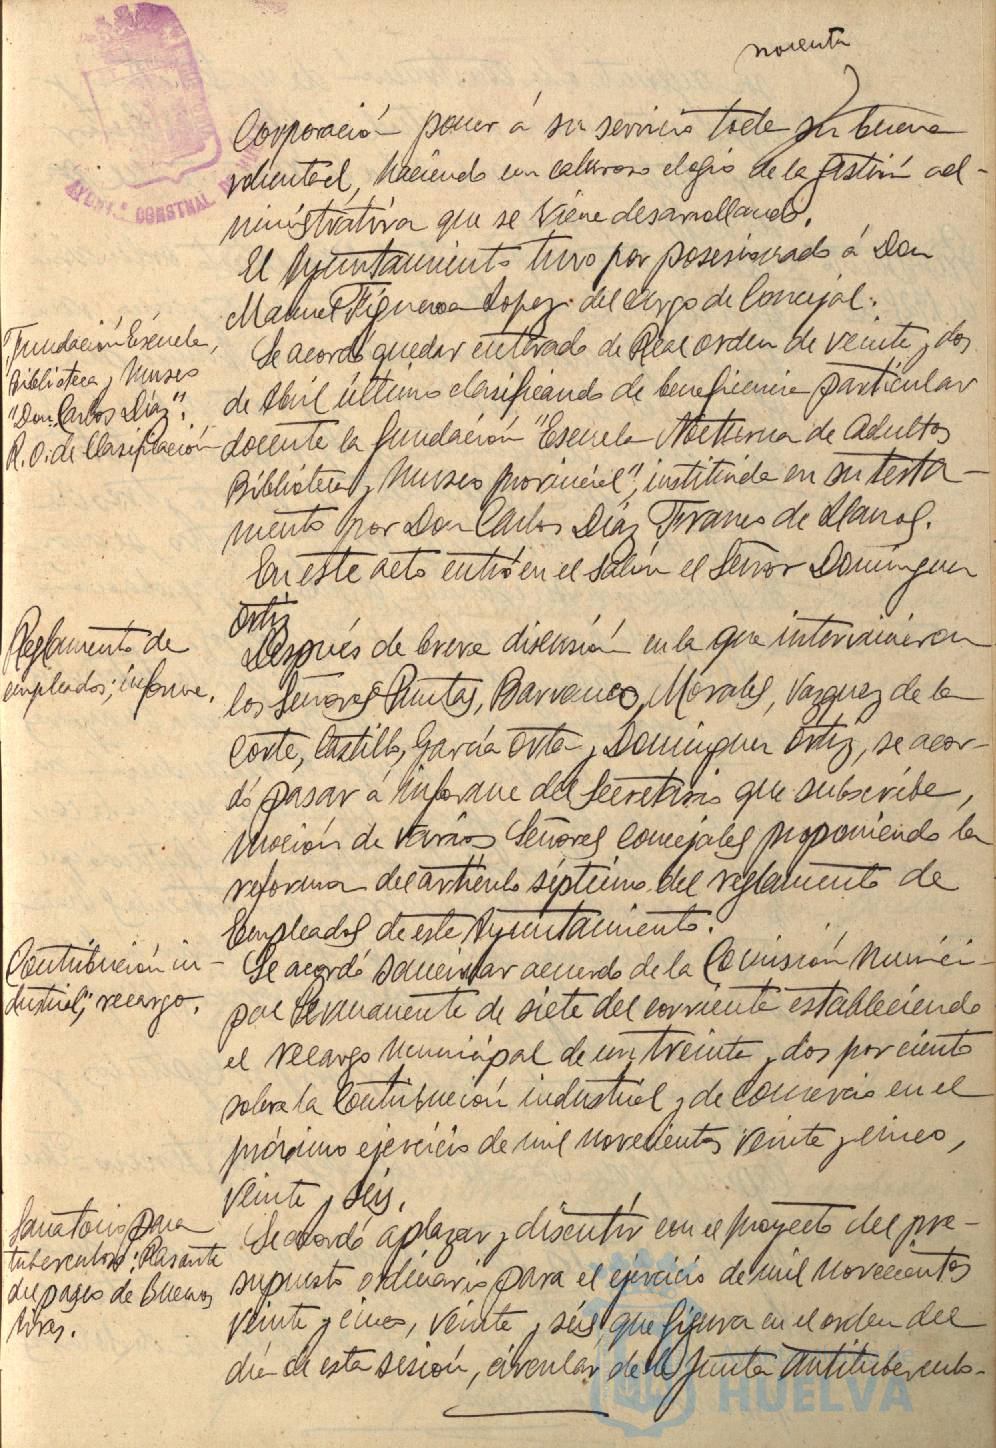 noventa
Corporación poner á su servicio toda su buena
voluntad, haciendo un caluroso elogio de la gestión ad-
ministrativa que se viene desarrollando.
El Ayuntamiento tuvo por posesionado á Don
Manuel Figueroa Lopez del cargo de Concejal.
Fundación Escuela,
Biblioteca y Museo
"Don Carlos Díaz".
R.O. de Clasificación
Se acordó quedar enterado de Real orden de veinte y dos
de Abril último clasificando de beneficencia particular
docente la fundación "Escuela Nocturna de Adultos
Biblioteca y Museo provincial", instituida en su testa-
mento por Don Carlos Díaz Franco de Llanos.
En este acto entró en el salón el Señor Dominguez
Ortiz
Reglamento de
empleados; informe.
Después de breve discusión en la que intervinieron
los Señores Puntas, Barranco, Morales, Vazquez de la
Corte, Castilla, García Orta y Dominguez Ortiz, se acor-
dó pasar á informe del Secretario que subscribe,
moción de varios Señores Concejales proponiendo la
reforma del artículo séptimo del reglamento de
Empleados de este Ayuntamiento.
Contribución in-
dustrial; recargo.
Se acordó sancionar acuerdo de la Comisión Munici-
pal Permanente de siete del corriente estableciendo
el recargo Municipal de un treinta y dos por ciento
sobre la Contribución industrial y de Comercio en el
próximo ejercicio de mil novecientos veinte y cinco,
veinte y seis.
Sanatorio para
tuberculosos; Rasante
del paseo de Buenos
Aires.
Se acordó aplazar y discutir con el proyecto del pre-
supuesto ordinario para el ejercicio de mil novecientos
veinte y cinco, veinte y seis que figura en el orden del
día de esta sesión, circular de la Junta Antitubercul-
AYUNT.º CONSTNAL
HUELVA